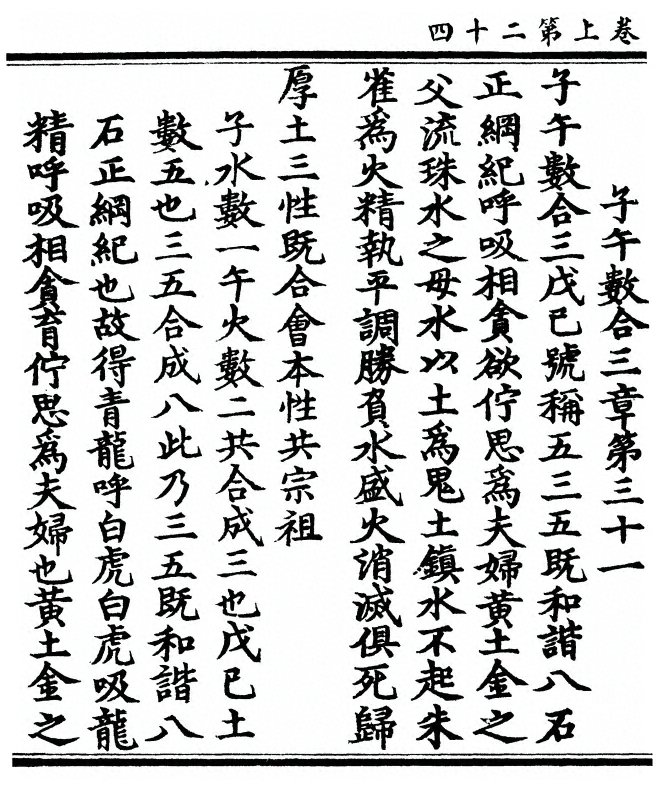 卷上第二十四
子午數合三章第三十一
子午數合三戊己號稱五三五既和諧八石
正綱紀呼吸相貪欲佇思爲夫婦黃土金之
父流珠水之母水以土爲鬼土鎮水不起朱
雀爲火精執平調勝負水盛火消滅俱死歸
厚土三性既合會本性共宗祖
子水數一午火數二共合成三也戊己土
數五也三五合成八此乃三五既和諧八
石正綱紀也故得青龍呼白虎白虎吸龍
精呼吸相貪育佇思爲夫婦也黃土金之